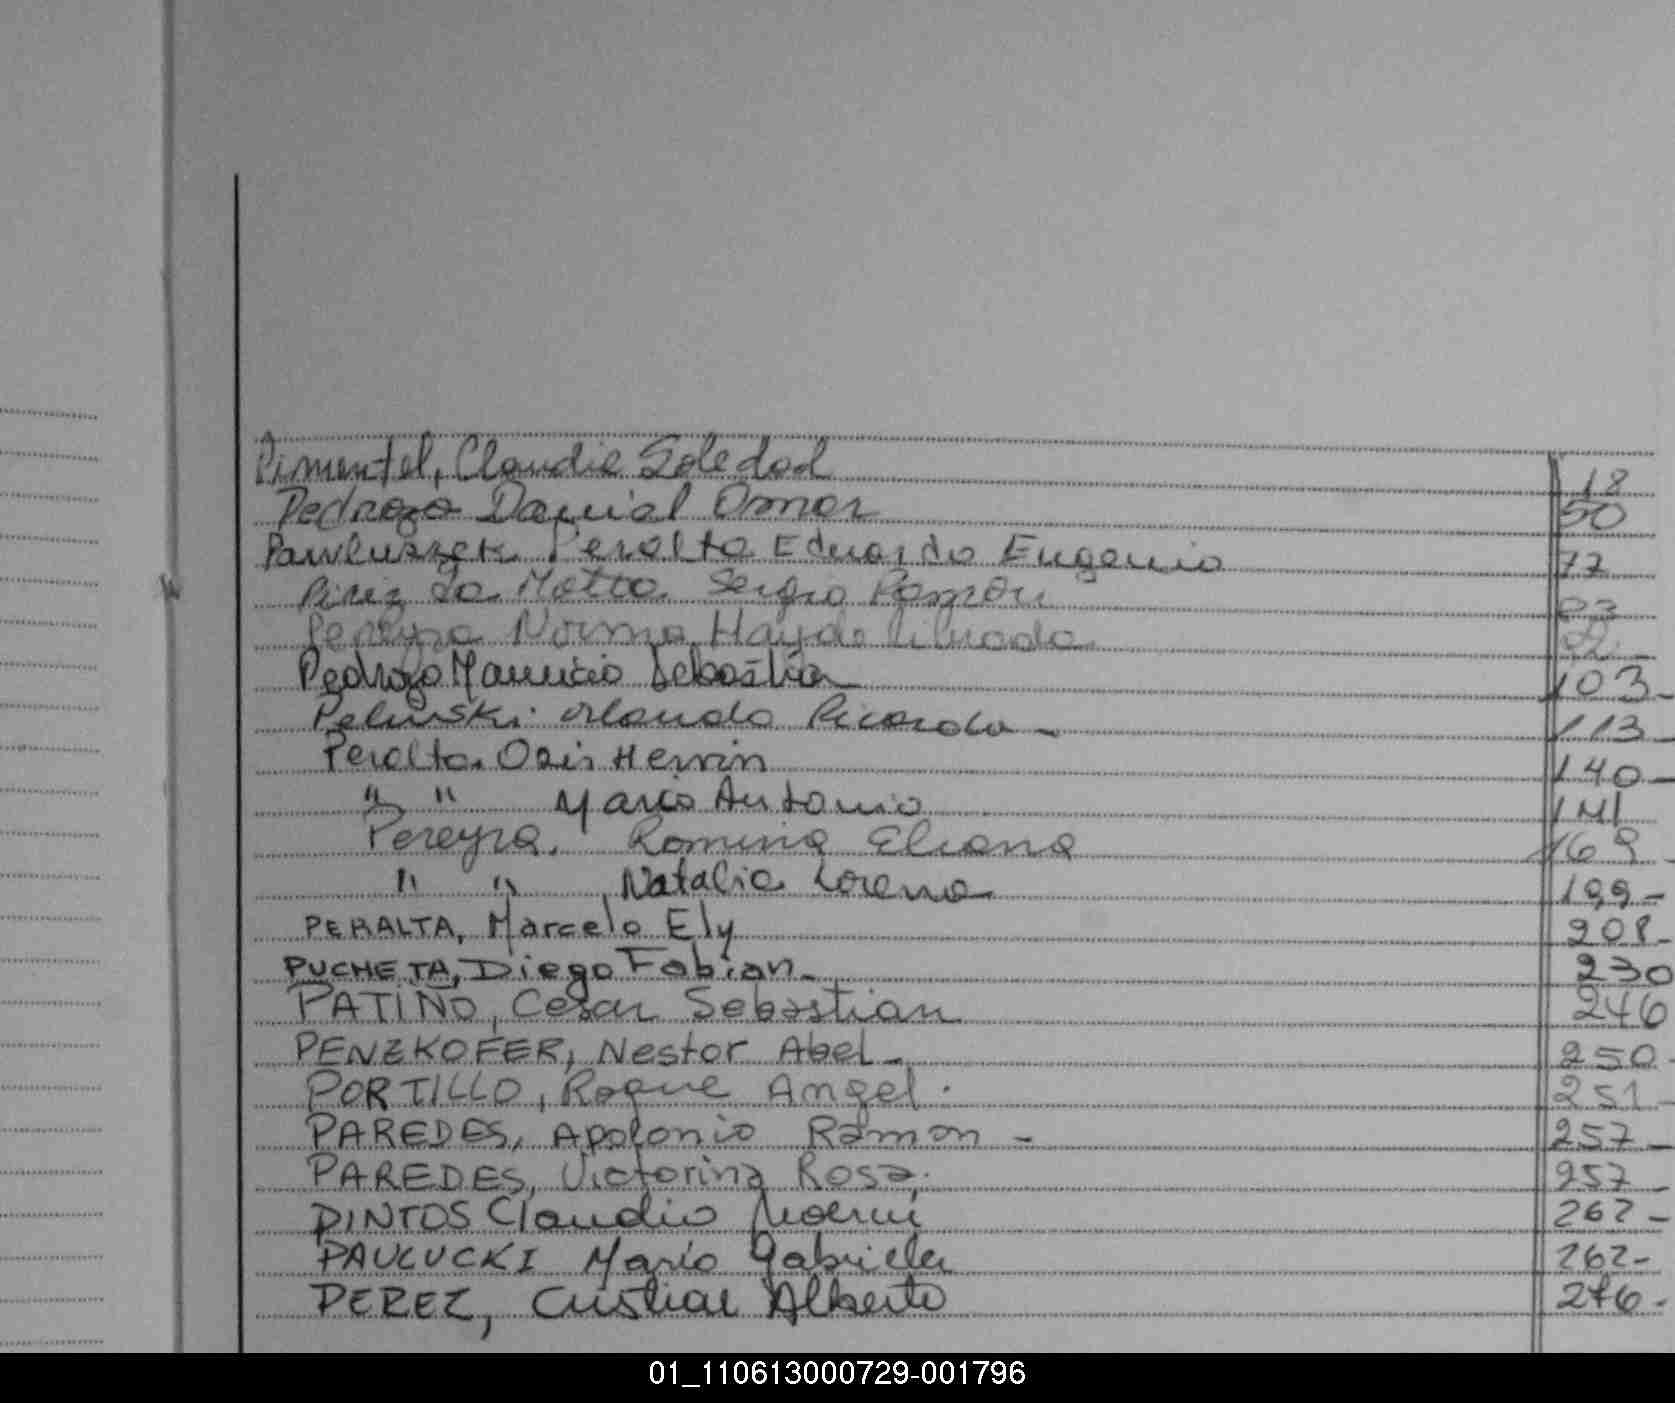 Pimentel, Claudia Soledad 18
Pedrozo Daniel Omar 50
Pawluszek Peralta Eduardo Eugenio 77
Pirez Da Motta Sergio Ramon 83
Pereyra Norma Hayde
Pedrozo Mauricio Sebastian 103-
Peluski Orlando Ricardo - 113-
Peralta. Osis Hernin 140-
" " Mario Antonio 141
Pereyra. Romina Eliana 169-
" " Natalia Lorena 199-
PERALTA, Marcelo Ely 208-
PUCHETA, Diego Fabian- 230
PATIÑO, Cesar Sebastian 246
PENZKOFER, Nestor Abel- 250-
PORTILLO, Roque Angel. 251-
PAREDES, Apolonio Ramon - 257-
PAREDES, Victorina Rosa. 257-
PINTOS Claudio Noemi 262-
PAULUCKI Mario Gabriela 262-
PEREZ, Cristian Alberto 276-
01_110613000729-001796